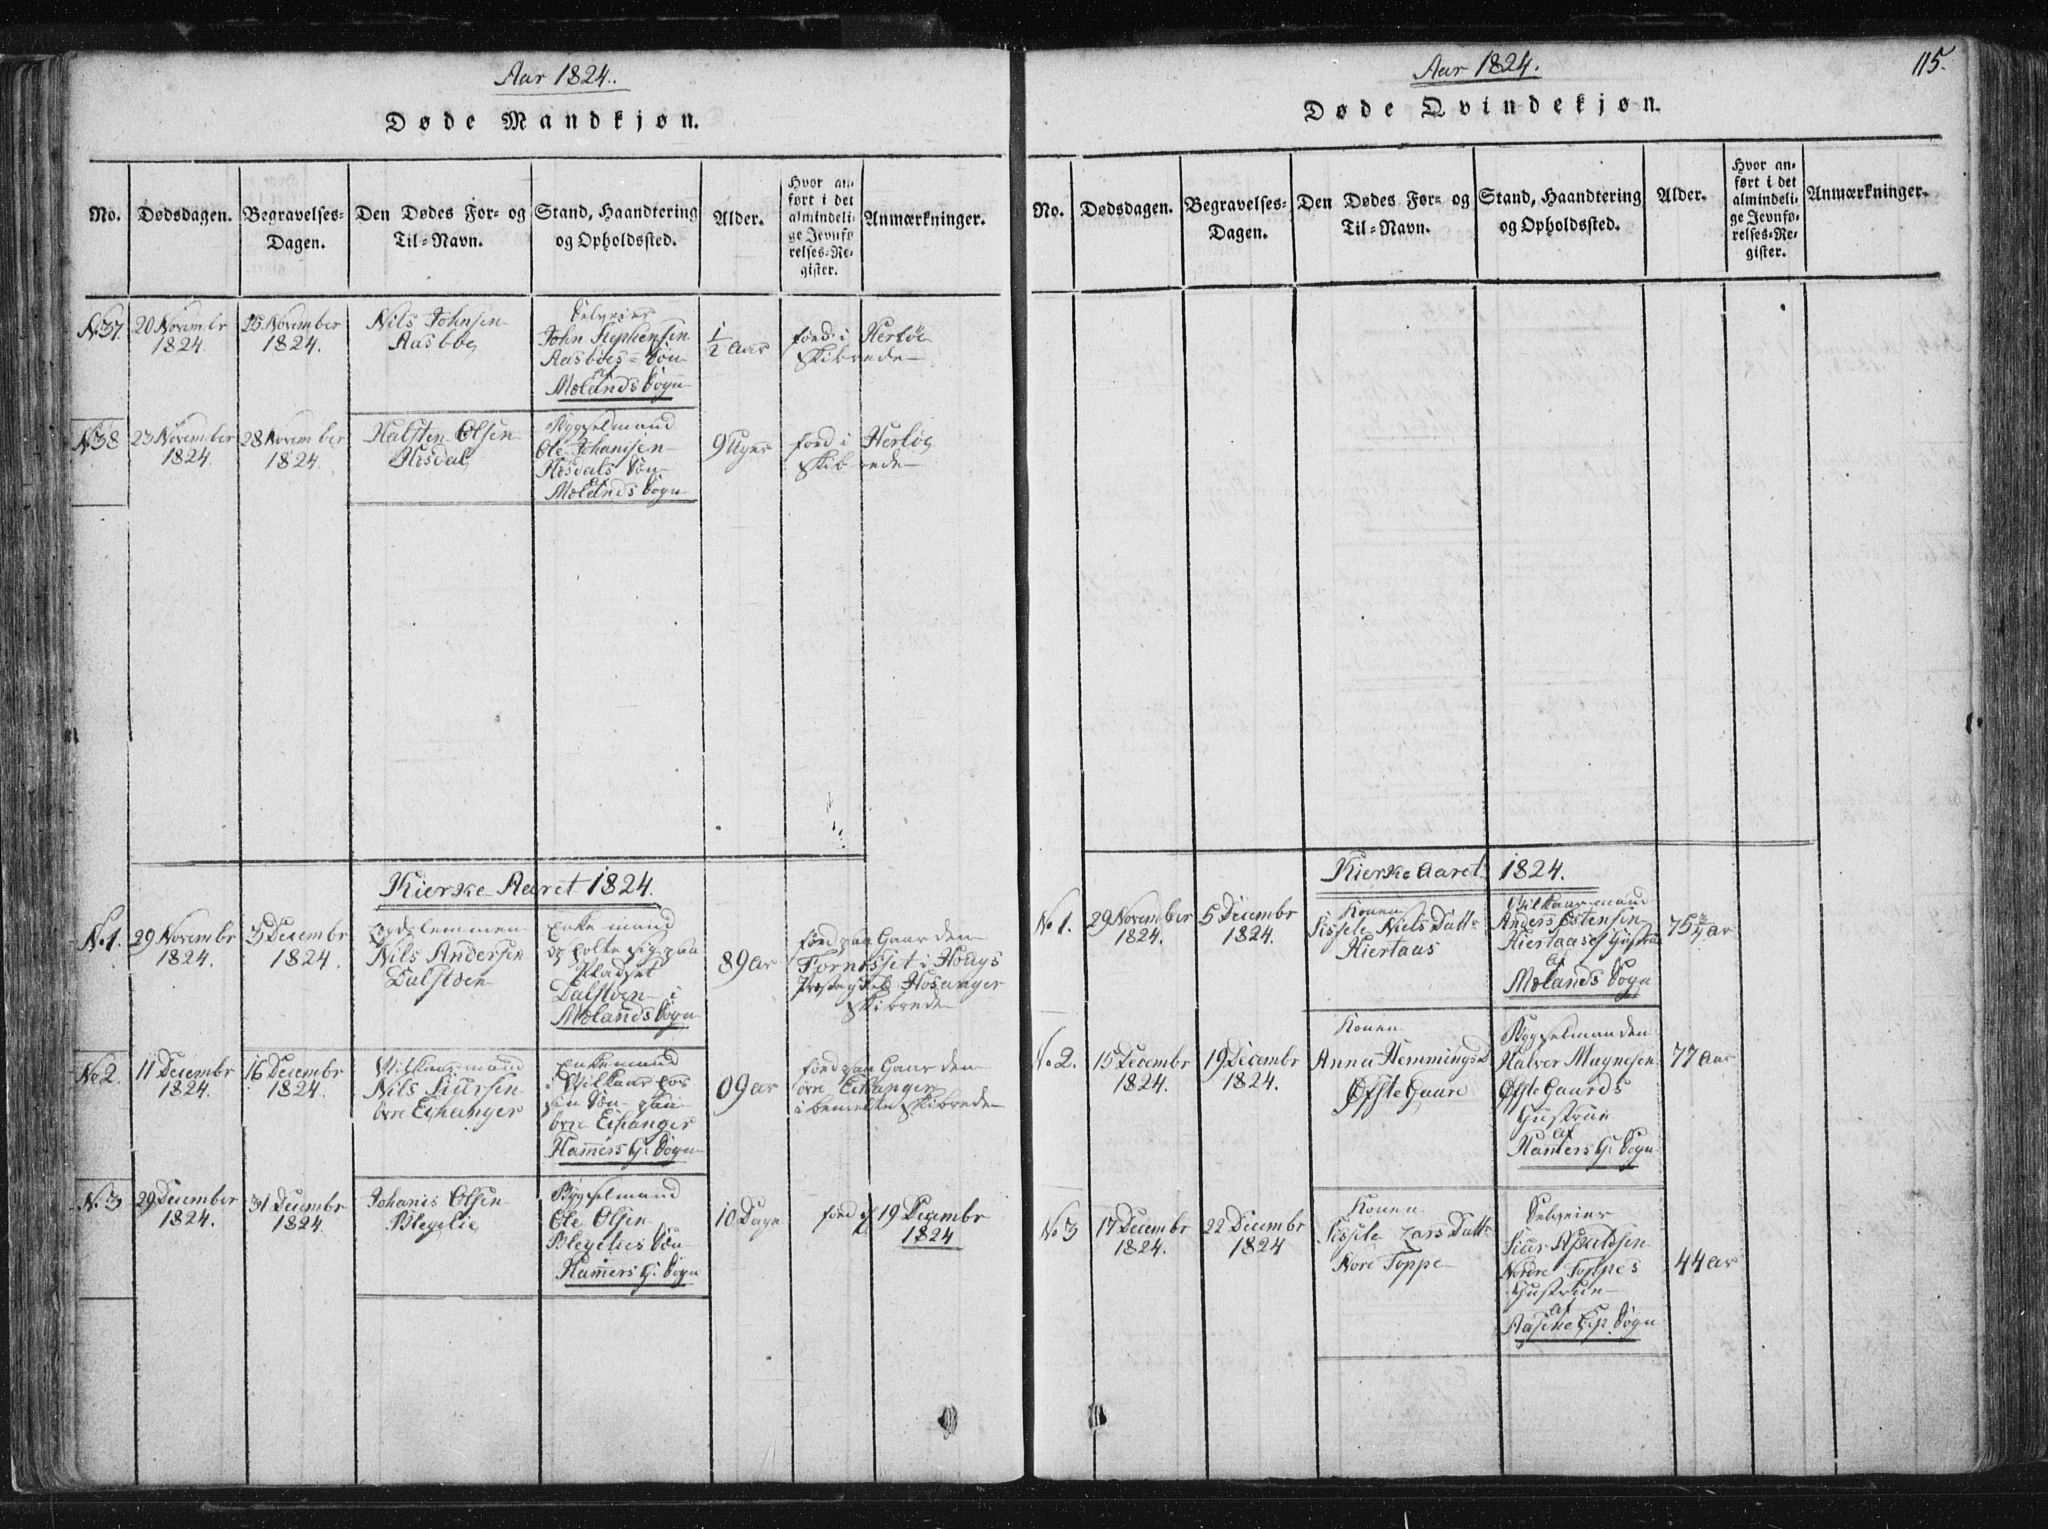 Aar 1824.
Døde Mandkjøn.
No.
Dødsdagen.
Begravelses-
Dagen.
Den Dødes For- og
Til-Navn.
Stand, Haandtering
og Opholdssted.
Alder.
Hvor an-
ført i det
almindeli-
ge Jevnfø-
relses-Re-
gister.
Anmærkninger.
No 37
20 Novembr
1824.
25 November
1824.
Nils Johnsen
Aasbøe
Selveier
John Stephensen
Aasbøes Søn
af
Mælands Sogn
1/2 Aar
fød i Herløe
Skibrede
No 38
23 November
1824.
28 November
1824.
Halsten Olsen
Hisdal
Bygselmand
Ole Johannsen
Hisdals Søn
af
Mælands Sogn
9 Uger
fød i Herløe
Skibrede
Kierke Aaret 1824.
No 1.
29 Novembr
1824.
5 Decembr
1824.
Nils Andersen
Dalstøen
Enkemand
og holte sig paa
Pladset
Dalstøen i
Mælands Sogn
89 ar
fød paa Gaarden
i Hougs
Hosanger
Skibrede
No 2.
11 Decembr
1824.
16 Decembr
1824.
Vilkaarmand
Nils Siursen
øvre Eikanger
Enkemand
i Vilkaar hos
sin Søn paa
øvre Eikanger
Hammers H: Sogn
fød paa Gaarden
øvre Eikanger
i bemelte Skibrede
No 3
29 December
1824.
31 Decembr
1824.
Johanes Olsen
Blegelie
Bygselmand
Ole Olsen
Blegelies Søn
Hammers H: Sogn
10 Dage
fød d 19 Decembr
1824
Aar 1824.
115.
Døde Qvindekjøn.
No.
Dødsdagen.
Begravelses-
Dagen.
Den Dødes For- og
Til-Navn.
Stand, Haandtering
og Opholdssted.
Alder.
Hvor an-
ført i det
almindeli-
ge Jevnfø-
relses-Re-
gister.
Anmærkninger.
Kierke Aaret 1824.
No 1.
29 November
1824.
5 Decembr
1824.
Konen
Sissele Niels Dattr
Hiertaas
Vilkaarmand
Anders Ostensen
Hiertaases Hustrue
af
Mælands Sogn
75 3/4 ar
No 2.
15 Decembr
1824.
19 Decembr
1824.
Konen
Anna Hemmingsd
ØfsteGaard
Bygselmanden
Halver Magnesen
ØfsteGaards
Hustrue
af
Hamers H: Sogn
77 Aar
No 3
17 Decembr
1824.
22 Decembr
1824
Konen
Sissele Lars Dattr
Nore Toppe
Selveier
Siur
Nordre Toppes
Hustrue
af
Sogn
44 ar